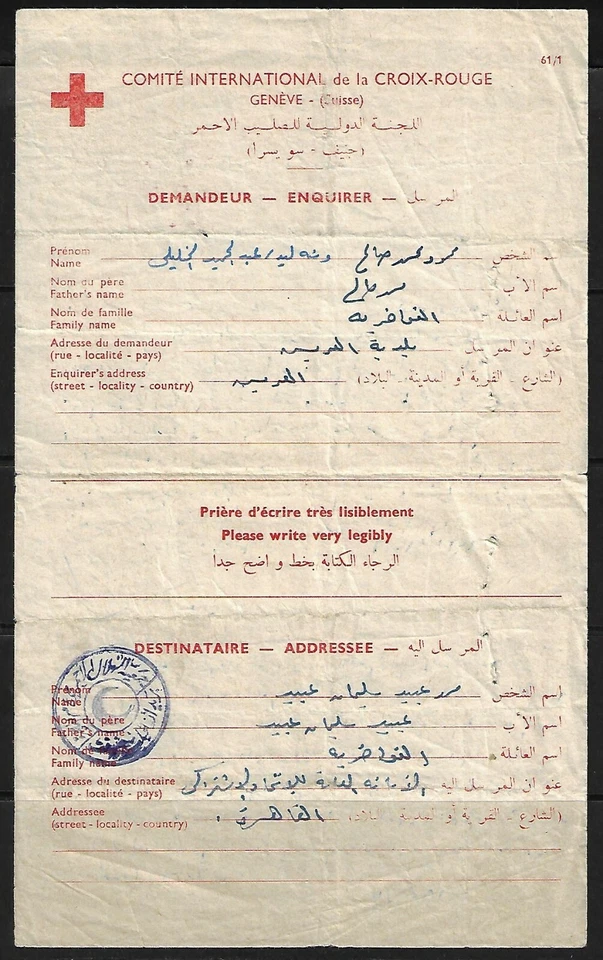 61/1
COMITÉ INTERNATIONAL de la CROIX-ROUGE
GENÈVE - (Suisse)
اللجنة الدولية للصليب الاحمر
(جنيف - سويسرا)
DEMANDEUR — ENQUIRER — المرسل
Prénom
Name
اسم الشخص محمد صالح
Nom du père
Father's name
اسم الأب
Nom de famille
Family name
اسم العائلة الفواخرية
Adresse du demandeur
(rue - localité - pays)
عنوان المرسل بلدية العريش
Enquirer's address
(street - locality - country)
(الشارع - القرية أو المدينة - البلاد) العريش
Prière d'écrire très lisiblement
Please write very legibly
الرجاء الكتابة بخط واضح جدا
DESTINATAIRE — ADDRESSEE — المرسل اليه
Prénom
Name
اسم الشخص عبيد سليمان عبيد
Nom du père
Father's name
اسم الأب عبيد سلمان عبيد
Nom de famille
Family name
اسم العائلة الفواخرية
Adresse du destinataire
(rue - localité - pays)
عنوان المرسل اليه الأمانه العامة للاتحاد الاشتراكي
Addressee
(street - locality - country)
(الشارع - القرية أو المدينة - البلاد) القاهرة